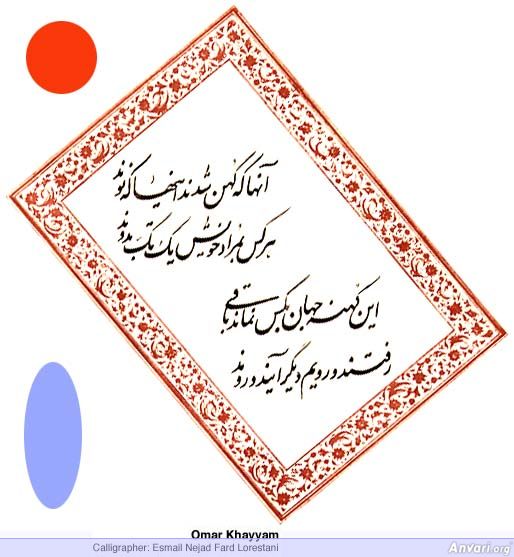 آنها که کهن شدند اینها که نوند
هر کس بمراد خویش یک تک بدوند
این کهنه جهان بکس نماند باقی
رفتند و رویم دیگر آیند و روند
Omar Khayyam
Calligrapher: Esmail Nejad Fard Lorestani
Anvari.org